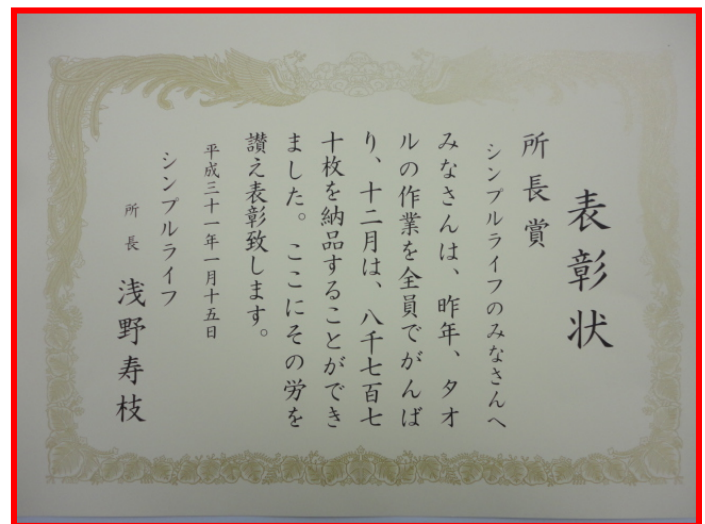 表彰状
所長賞
シンプルライフのみなさんへ
みなさんは、昨年、タオ
ルの作業を全員でがんば
り、十二月は、八千七百七
十枚を納品することができ
ました。ここにその労を
讃え表彰致します。
平成三十一年一月十五日
シンプルライフ
所長 浅野寿枝